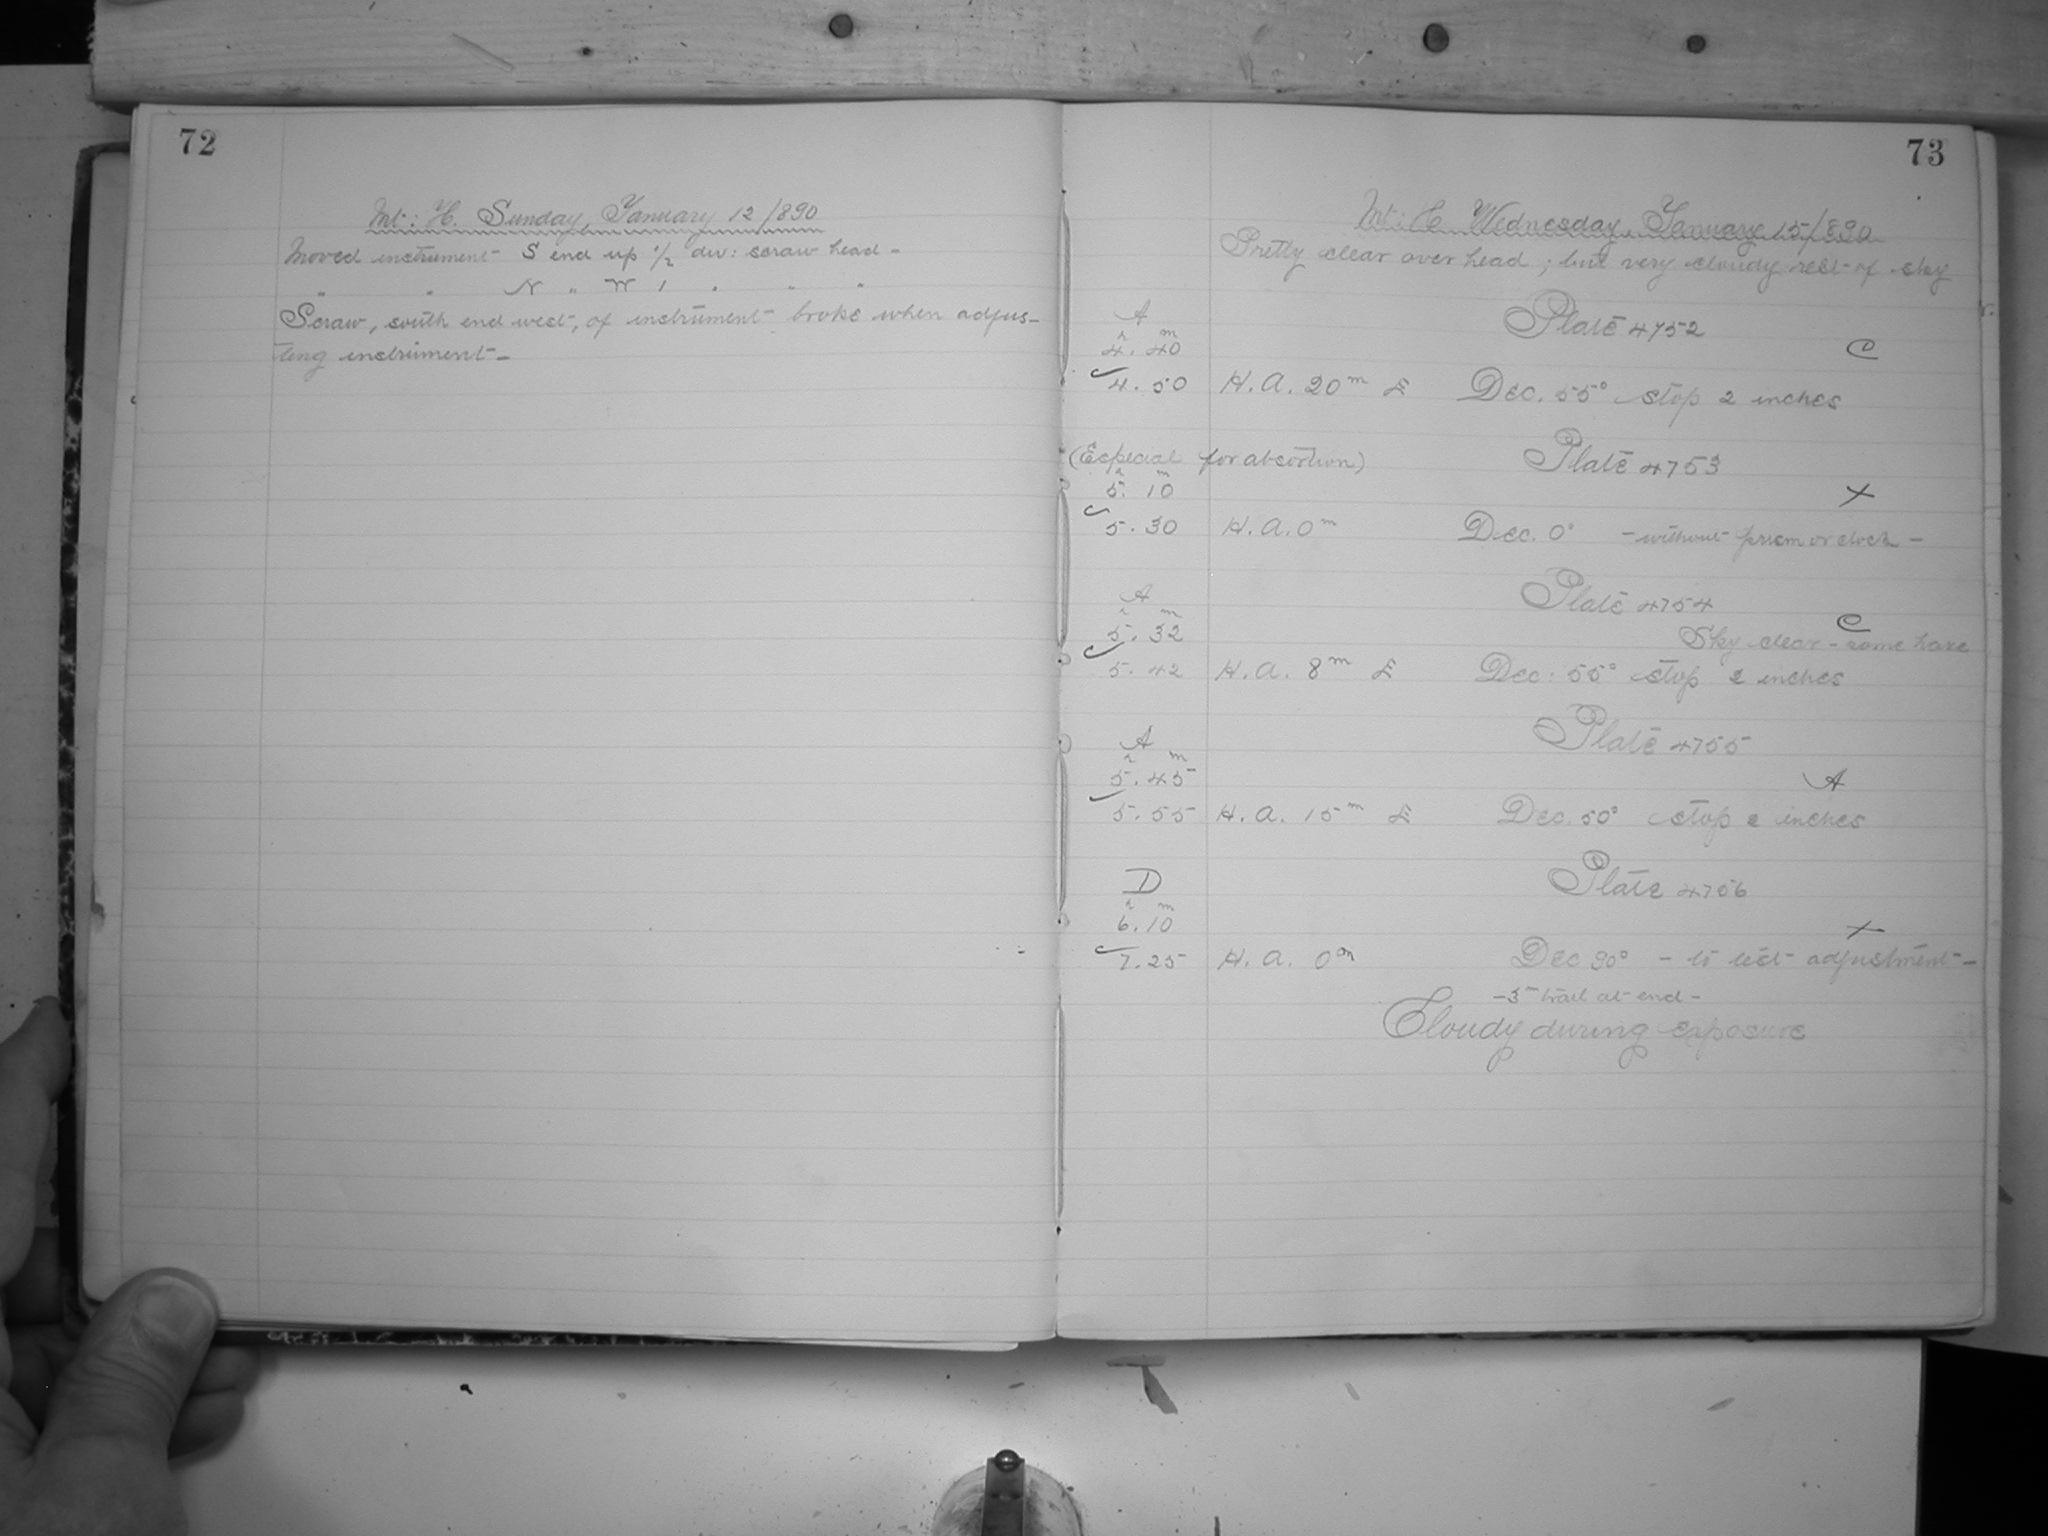 72
Mt: H. Sunday, January 12/890
Moved instrument S end up 1/2 div: scraw head -
" " N " W 1 " " "
Scraw, south end west, of instrument broke when adjus-
ting instrument -
73
Mt: H. Wednesday, January 15/890
Pretty clear over head; but very cloudy rest of sky
A Plate 4752
h m
4. 40 C
4. 50 H. A. 20m E Dec. 55° stop 2 inches
(Especial for absortion) Plate 4753
h m
5. 10 X
5. 30 H. A. 0m Dec. 0° - without prism or clock -
A Plate 4754
h m C
5. 32 Sky clear - some haze
5. 42 H. A. 8m E Dec: 55° stop 2 inches
A Plate 4755
h m
5. 45 A
5. 55 H. A. 15m E Dec. 50° stop 2 inches
D Plate 4756
h m
6. 10 X
7. 25 H. A. 0m Dec 90° - to test adjustment -
- 3m trail at end -
Cloudy during exposure